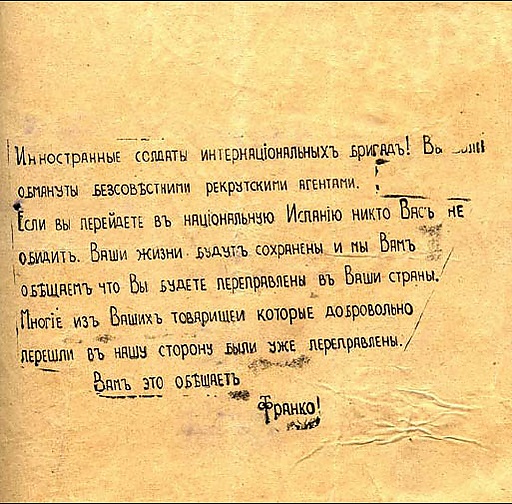 Иностранные солдаты интернаціональныхъ бригадъ! Вы были
обмануты безсовѣстними рекрутскими агентами.
Если вы перейдете въ національную Испанію никто Васъ не
обидитъ. Ваши жизни будутъ сохранены и мы Вамъ
обѣщаемъ что Вы будете переправлены въ Ваши страны.
Многіе изъ Вашихъ товарищеи которые добровольно
перешли въ нашу сторону были уже переправлены.
Вамъ это обѣщаетъ
Франко!